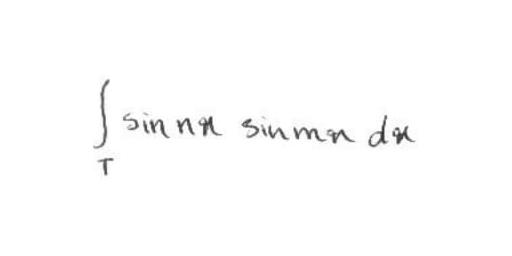 ∫_T sin nx sin mx dx